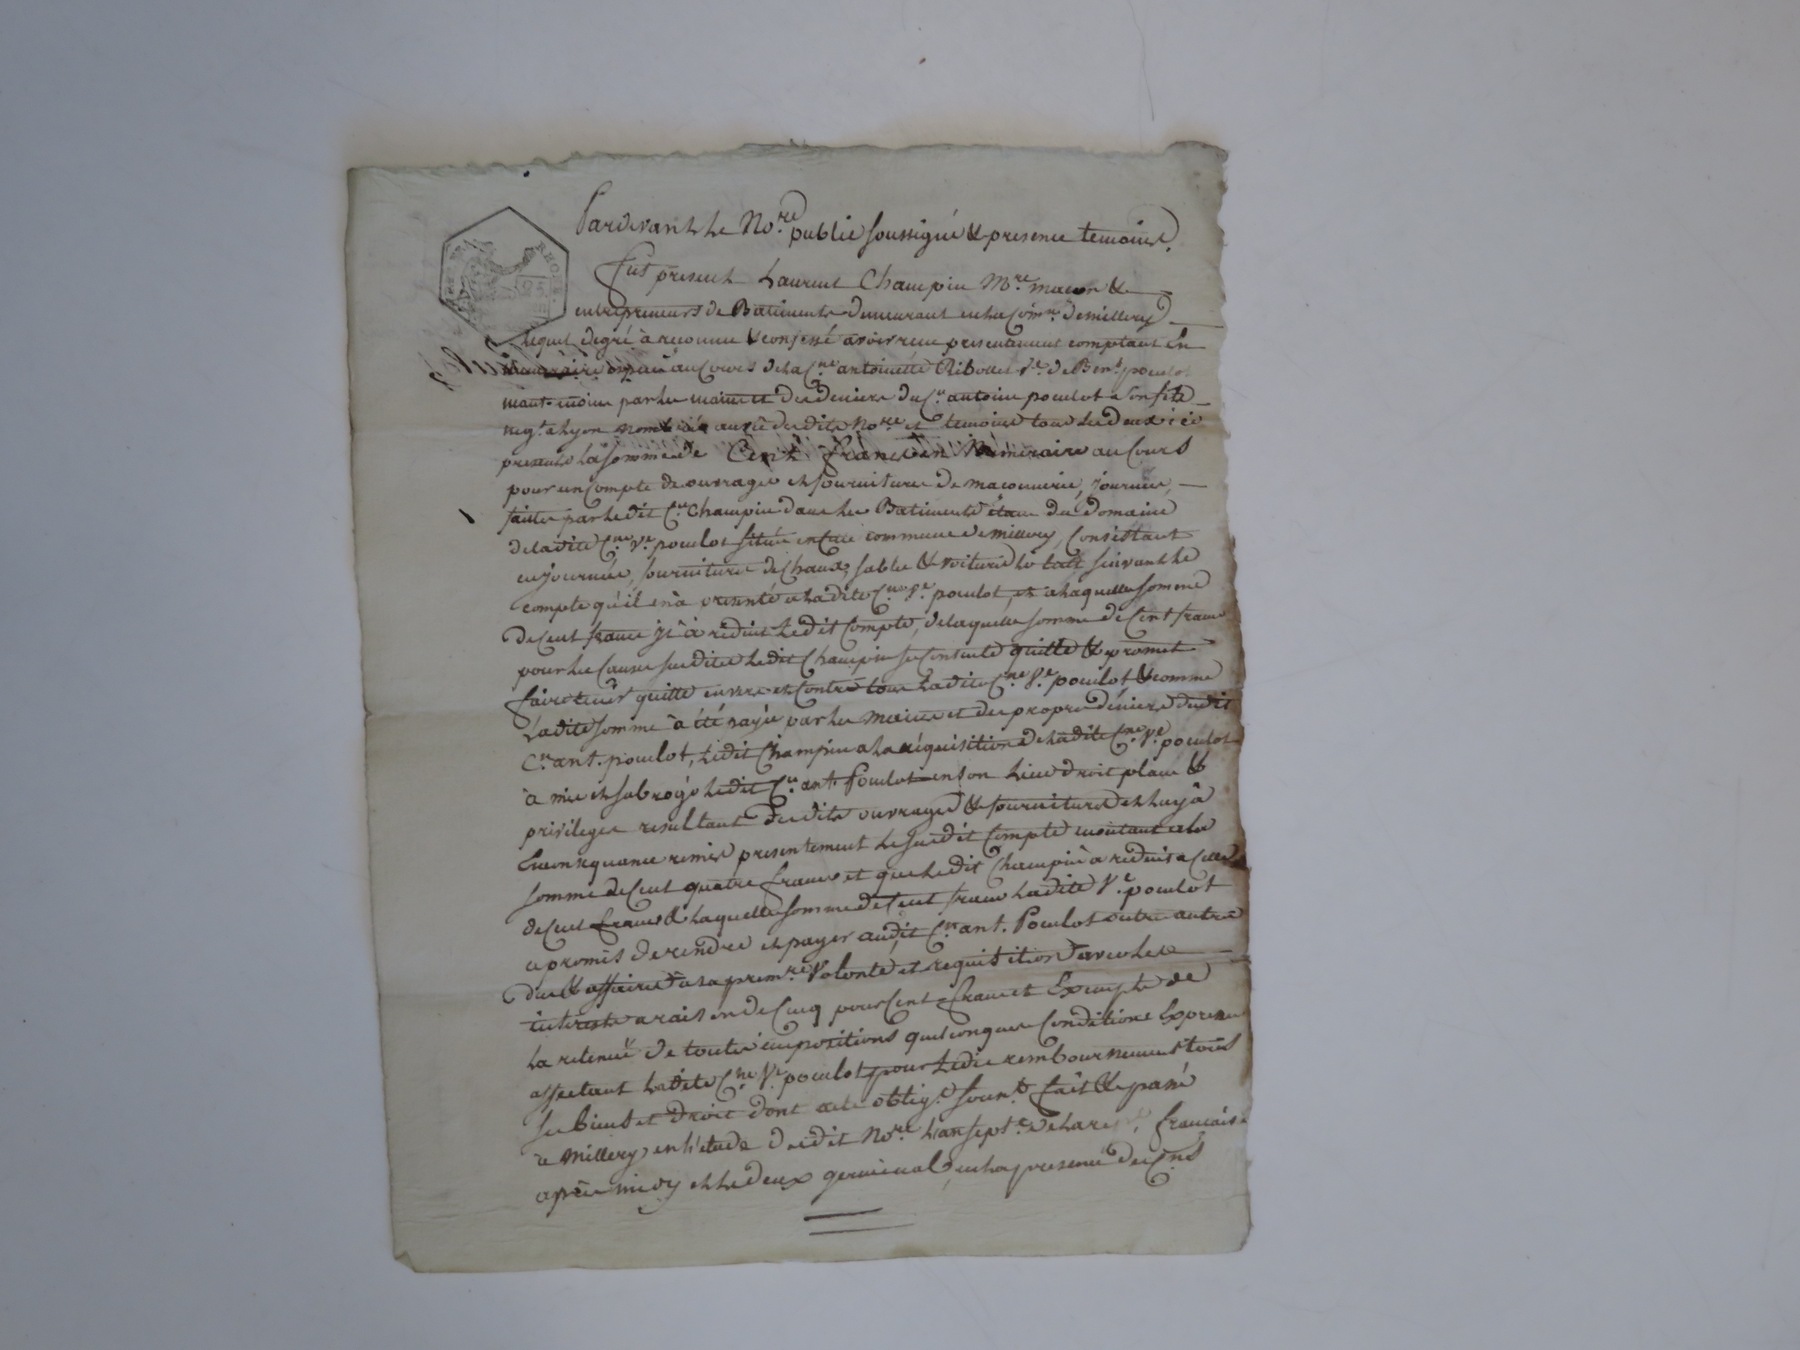 Pardevant Le No.re public soussigné & presence temoins.
fut present Laurent Champin M.re macon &
entrepreneurs de Batiments demeurant en la Com.ne de millery
Lequel degré à reconnu & confessé avoir reçu presentement comptant En
au Cours de la C.ne antoinette Riboulet V.e de Ben.t poculot
par les mains et des deniers du C.en antoine poculot son fils
neg.t a Lyon aux dits No.re et temoins tous Les deux ici
presents La somme de Cent francs en Numeraire au Cours
pour un Compte de ouvrages et fournitures de maconnerie, journées,
faites par Le dit C.en Champin dans Les Batiments du domaine
de La dite C.ne V.e poculot située en cette commune de millery, Consistant
en journées, fournitures de Chaux, sable & voitures Le tout suivant Le
compte qu'il en à presenté a La dite C.ne V.e poculot, et a Laquelle somme
de Cent francs il à réduit Le dit Compte, de Laquelle somme de Cent francs
pour Les Causes susdites Le dit Champin se Contente quitte & promet
faire tenir quitte envers et Contre tous La dite C.ne V.e poculot & comme
La dite somme à été payée par Les mains et des propres déniers du dit
C.en ant. poculot, Le dit Champin a La réquisition de La dite C.ne V.e poculot
à mis et subrogé Le dit C.en ant. Poculot en son Lieu droit place &
privileges resultant des dits ouvrages & fournitures et Luy à
En consequance remis presentement Le susdit Compte montant a La
somme de Cent quatre francs et que Le dit Champin à réduit a Celle
de Cent francs & Laquelle somme de Cent francs La dite V.e poculot
a promis de rendre et payer au dit C.en ant. Poculot outre autres
dues & affaires à sa prem.re Volonté et requisition avec Les
interests a raison de Cinq pour Cent francs et Exempts de
La retenue de toutes impositions quelconques Conditions Expresse
affectant La dite C.ne V.e poculot pour Le dit remboursement tous
ses biens et droits dont acte oblig.n soum.n fait & passé
a Millery en L'etude du dit No.re L'an sept.e de La rep. française
après midy et Le deux germinal, en La presence des C.ens